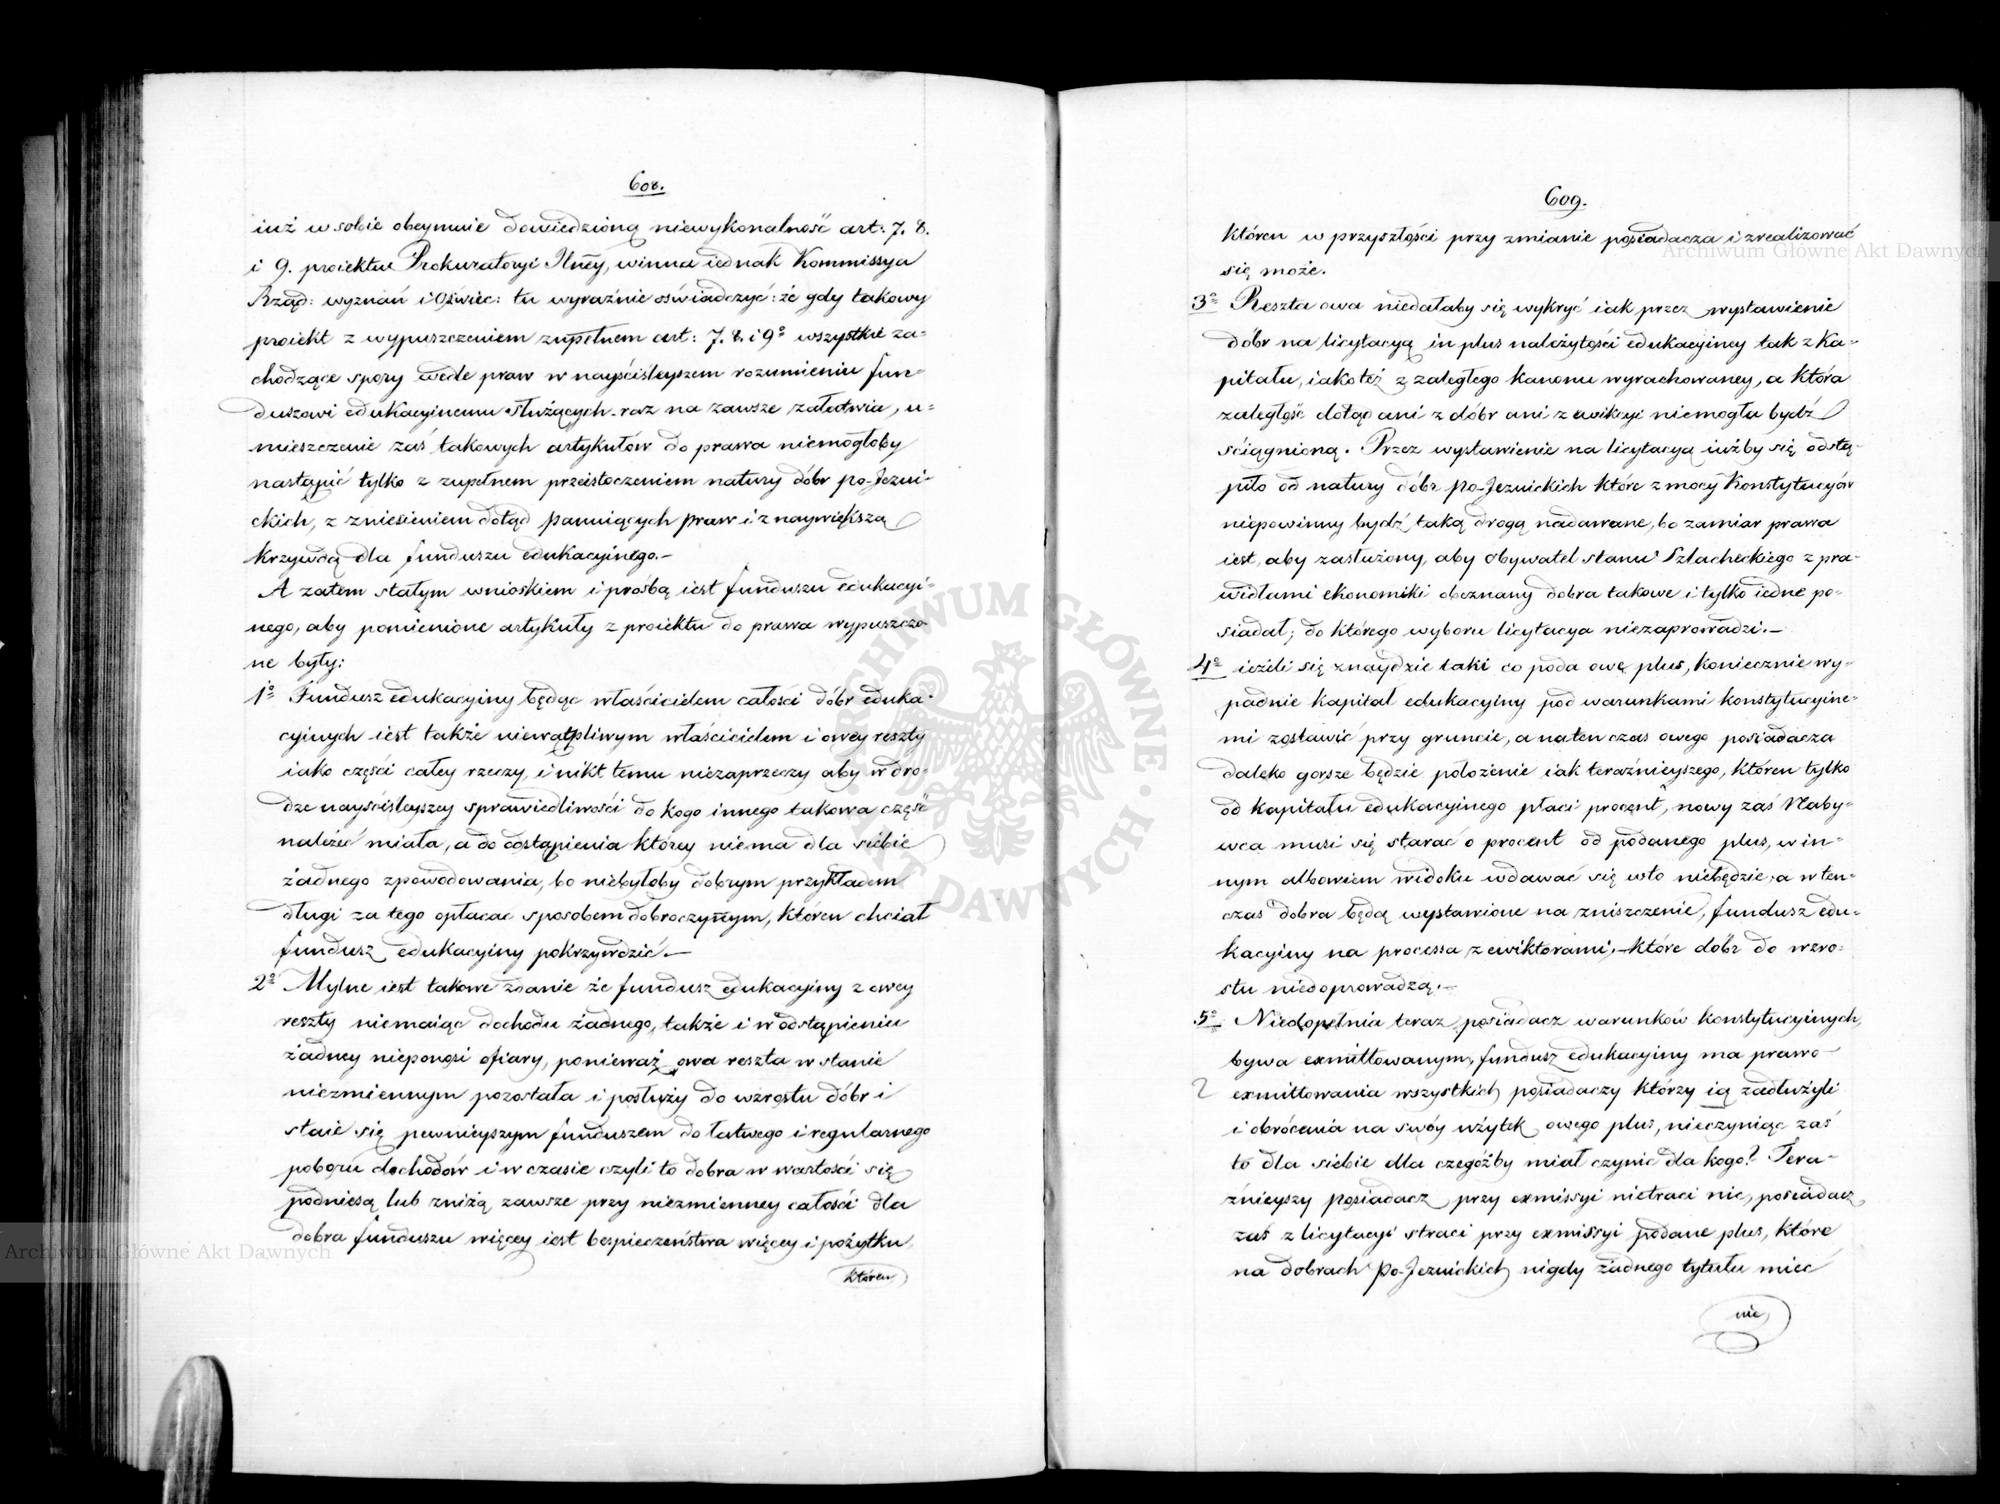 608.
iuż w sobie obeymuie dowiedzioną niewykonalność art: 7. 8.
i 9. proiektu Prokuratoryi Jlney, winna iednak Kommissya
Rząd: wyznań i Oświec: tu wyraźnie oświadczyć: że gdy takowy
proiekt z wypuszczeniem zupełnem art: 7. 8. i 9º wszystkie za-
chodzące spory wedle praw w nayściśleyszem rozumieniu fun-
duszowi edukacyinemu służących raz na zawsze załatwia, u-
mieszczenie zaś takowych artykułów do prawa niemogłoby
nastąpić tylko z zupełnem przeistoczeniem natury dóbr po-Jezui-
ckich, z zniesieniem dotąd panuiących praw i z naywiększą
krzywdą dla funduszu edukacyinego.—
A zatem stałym wnioskiem i prośbą iest funduszu edukacyi-
nego, aby pomienione artykuły z proiektu do prawa wypuszczo
ne były:
1º Fundusz edukacyiny będąc właścicielem całości dóbr eduka-
cyinych iest także niewątpliwym właścicielem i owey reszty
iako części całey rzeczy, i nikt temu niezaprzeczy aby w dro-
dze nayściśleyszey sprawiedliwości do kogo innego takowa część
należeć miała, a do odstąpienia którey niema dla siebie
żadnego zpowodowania, bo niebyłoby dobrym przykładem
długi za tego opłacać sposobem dobroczynnym, któren chciał
fundusz edukacyiny pokrzywdzić.—
2º Mylne iest takowe zdanie że fundusz edukacyiny z owey
reszty niemaiąc dochodu żadnego, także i w odstąpieniu
żadney nieponosi ofiary, ponieważ owa reszta w stanie
niezmiennym pozostała i posłuży do wzrostu dóbr i
staie się pewnieyszym funduszem do łatwego i regularnego
poboru dochodów i w czasie czyli to dobra w wartości się
podniesą lub zniżą, zawsze przy niezmienney całości dla
dobra funduszu więcey iest bespieczeństwa więcey i pożytku
któren
609.
któren w przyszłości przy zmianie posiadacza i zrealizować
się może.
3º Reszta owa niedałaby się wykryć iak przez wystawienie
dóbr na licytacyą in plus należytości edukacyiney tak z ka-
pitału, iako też z zaległego kanonu wyrachowaney, a która
zaległość dotąd ani z dóbr ani z ewikcyi niemogła bydź
ściągnioną. Przez wystawienie na licytacyą iużby się odstą-
piło od natury dóbr po-Jezuickich które z mocy Konstytucyów
niepowinny bydź taką drogą nadawane, bo zamiar prawa
iest, aby zasłużony, aby obywatel stanu Szlacheckiego z pra-
widłami ekonomiki obeznany dobra takowe i tylko iedne po-
siadał; do którego wyboru licytacya niezaprowadzi.—
4º ieżeli się znaydzie taki co poda owe plus, koniecznie wy-
padnie kapitał edukacyiny pod warunkami konstytucyine-
mi zostawić przy gruncie, a na ten czas owego posiadacza
daleko gorsze będzie położenie iak teraźnieyszego, któren tylko
od kapitału edukacyinego płaci procent, nowy zaś Naby-
wca musi się starać o procent od podanego plus, w in-
nym albowiem widoku wdawać się w to niebędzie, a w ten-
czas dobra będą wystawione na zniszczenie, fundusz edu-
kacyiny na processa z ewiktorami, które dóbr do wzro-
stu niedoprowadzą.—
5º Niedopełnia teraz posiadacz warunków konstytucyinych,
bywa exmittowanym, fundusz edukacyiny ma prawo
exmittowania wszystkich posiadaczy którzy ią zadłużyli
i obrócenia na swóy użytek owego plus, nieczyniąc zaś
to dla siebie dla czegóżby miał czynić dla kogo? Tera-
źnieyszy posiadacz przy exmissyi nietraci nic, posiadacz
zaś z licytacyi straci przy exmissyi podane plus, które
na dobrach po-Jezuickich nigdy żadnego tytułu mieć
nie